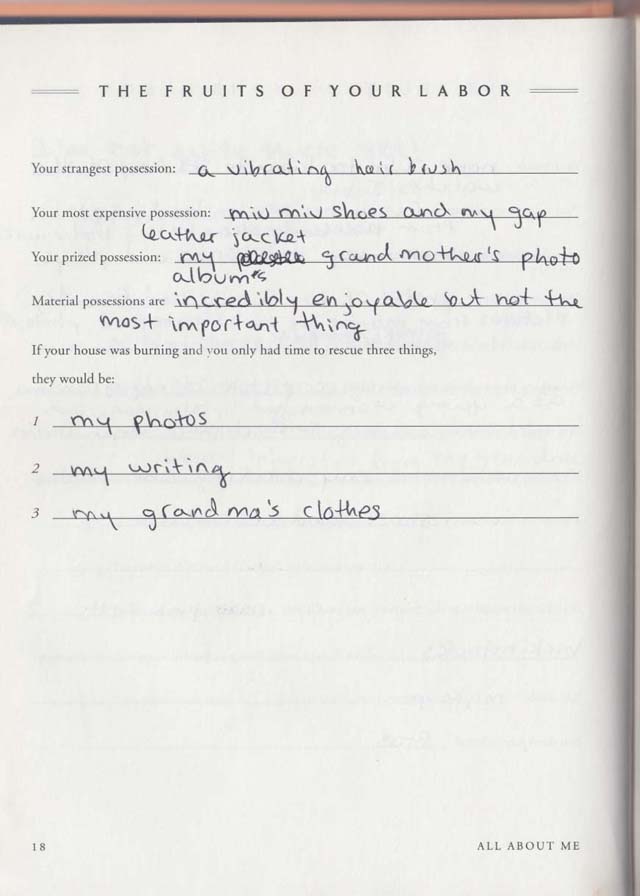 THE FRUITS OF YOUR LABOR
Your strangest possession: a vibrating hair brush
Your most expensive possession: miu miu shoes and my gap
leather jacket
Your prized possession: my grandmother's photo
album's
Material possessions are incredibly enjoyable but not the
most important thing
If your house was burning and you only had time to rescue three things,
they would be:
1 my photos
2 my writing
3 my grandma's clothes
18 ALL ABOUT ME